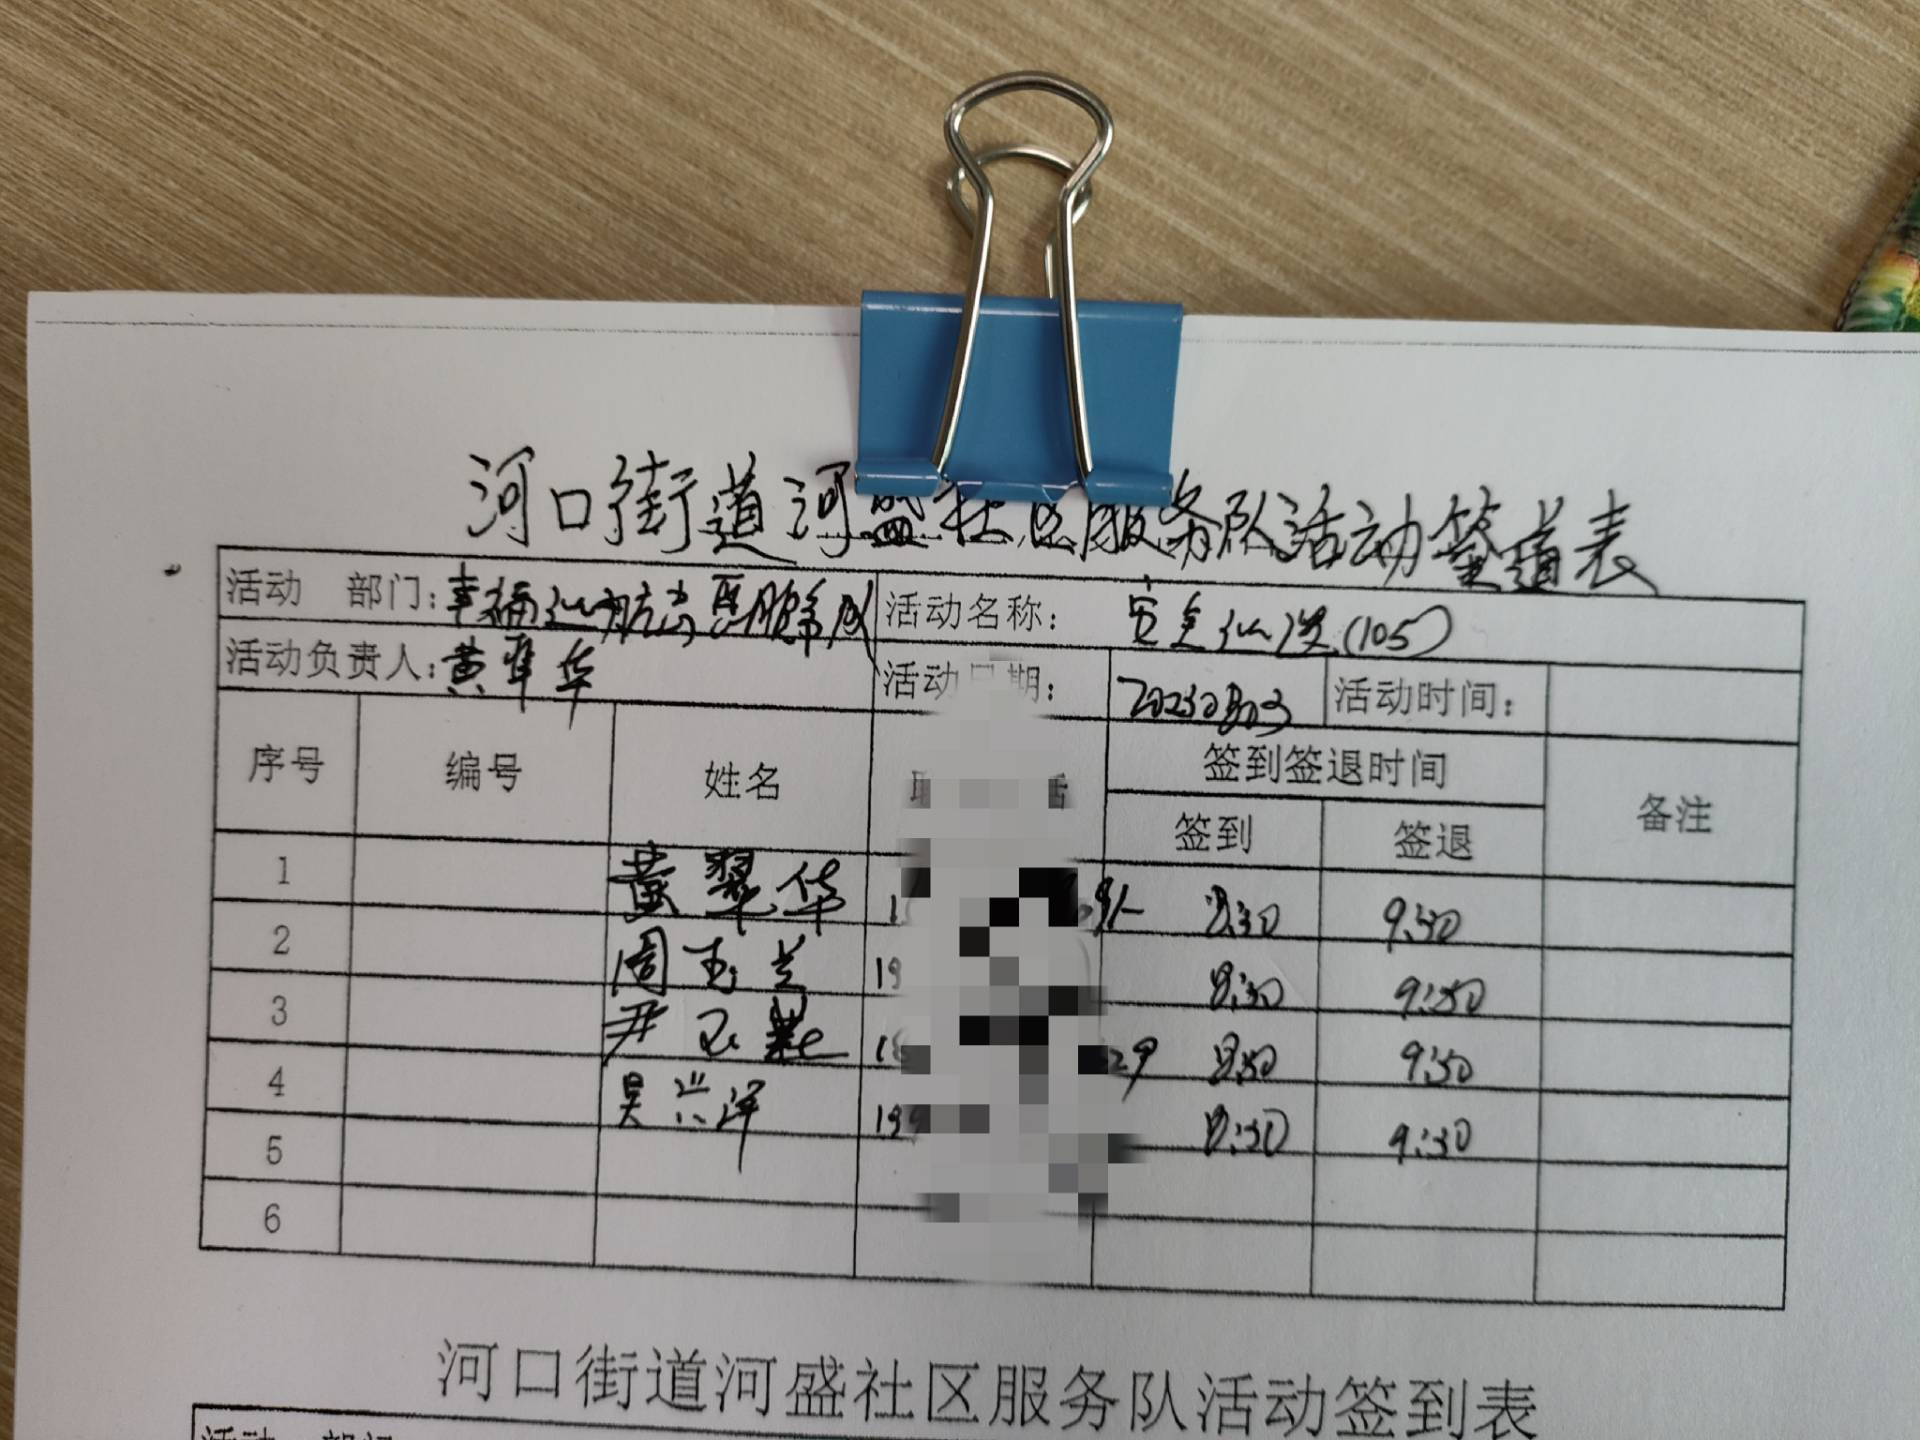 河口街道河盛社区服务队活动签道表
活动 部门: 幸福巡航志愿服务队 活动名称: 安全巡逻(105)
活动负责人: 黄翠华 活动日期: 20230803 活动时间:
序号 编号 姓名 签到签退时间 备注
签到 签退
1 黄翠华 8:30 9:30
2 周玉兰 19 8:30 9:30
3 尹 18 29 8:30 9:30
4 吴兴洋 199 8:30 9:30
5
6
河口街道河盛社区服务队活动签到表
活动 部门